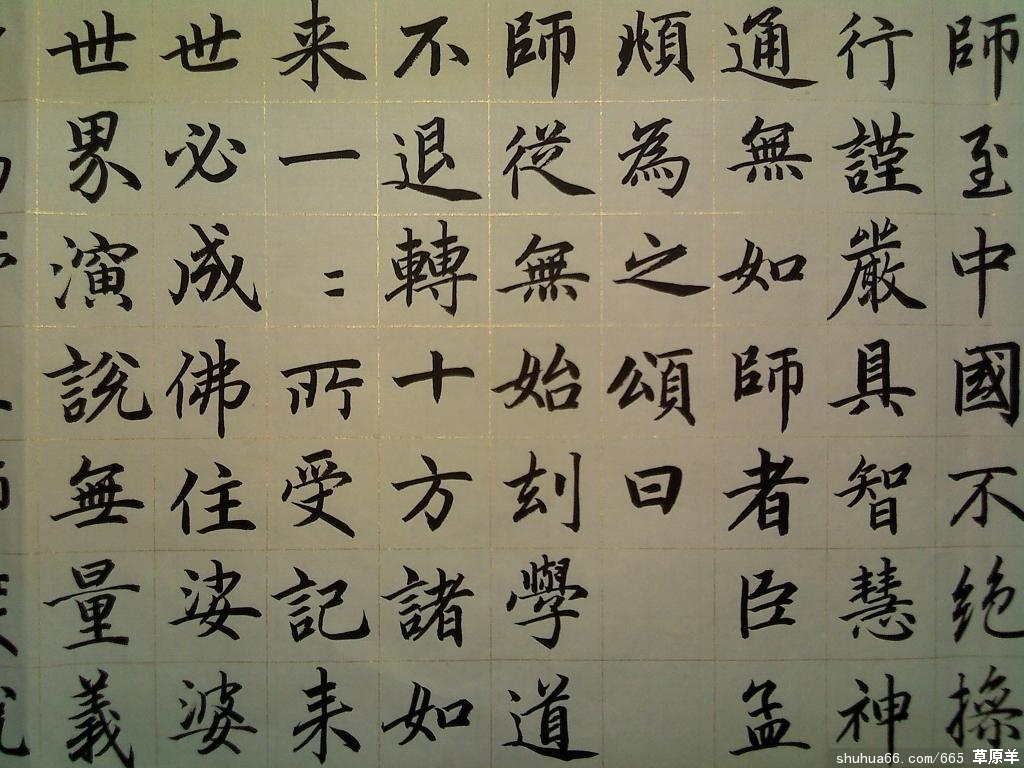 師至中國不絕操
行謹嚴具智慧神
通無如師者臣孟
頫為之頌曰
師從無始刻學道
不退轉十方諸如
来一二所受記来
世必成佛住娑婆
世界演説無量義
shuhua66.com/665 草原羊